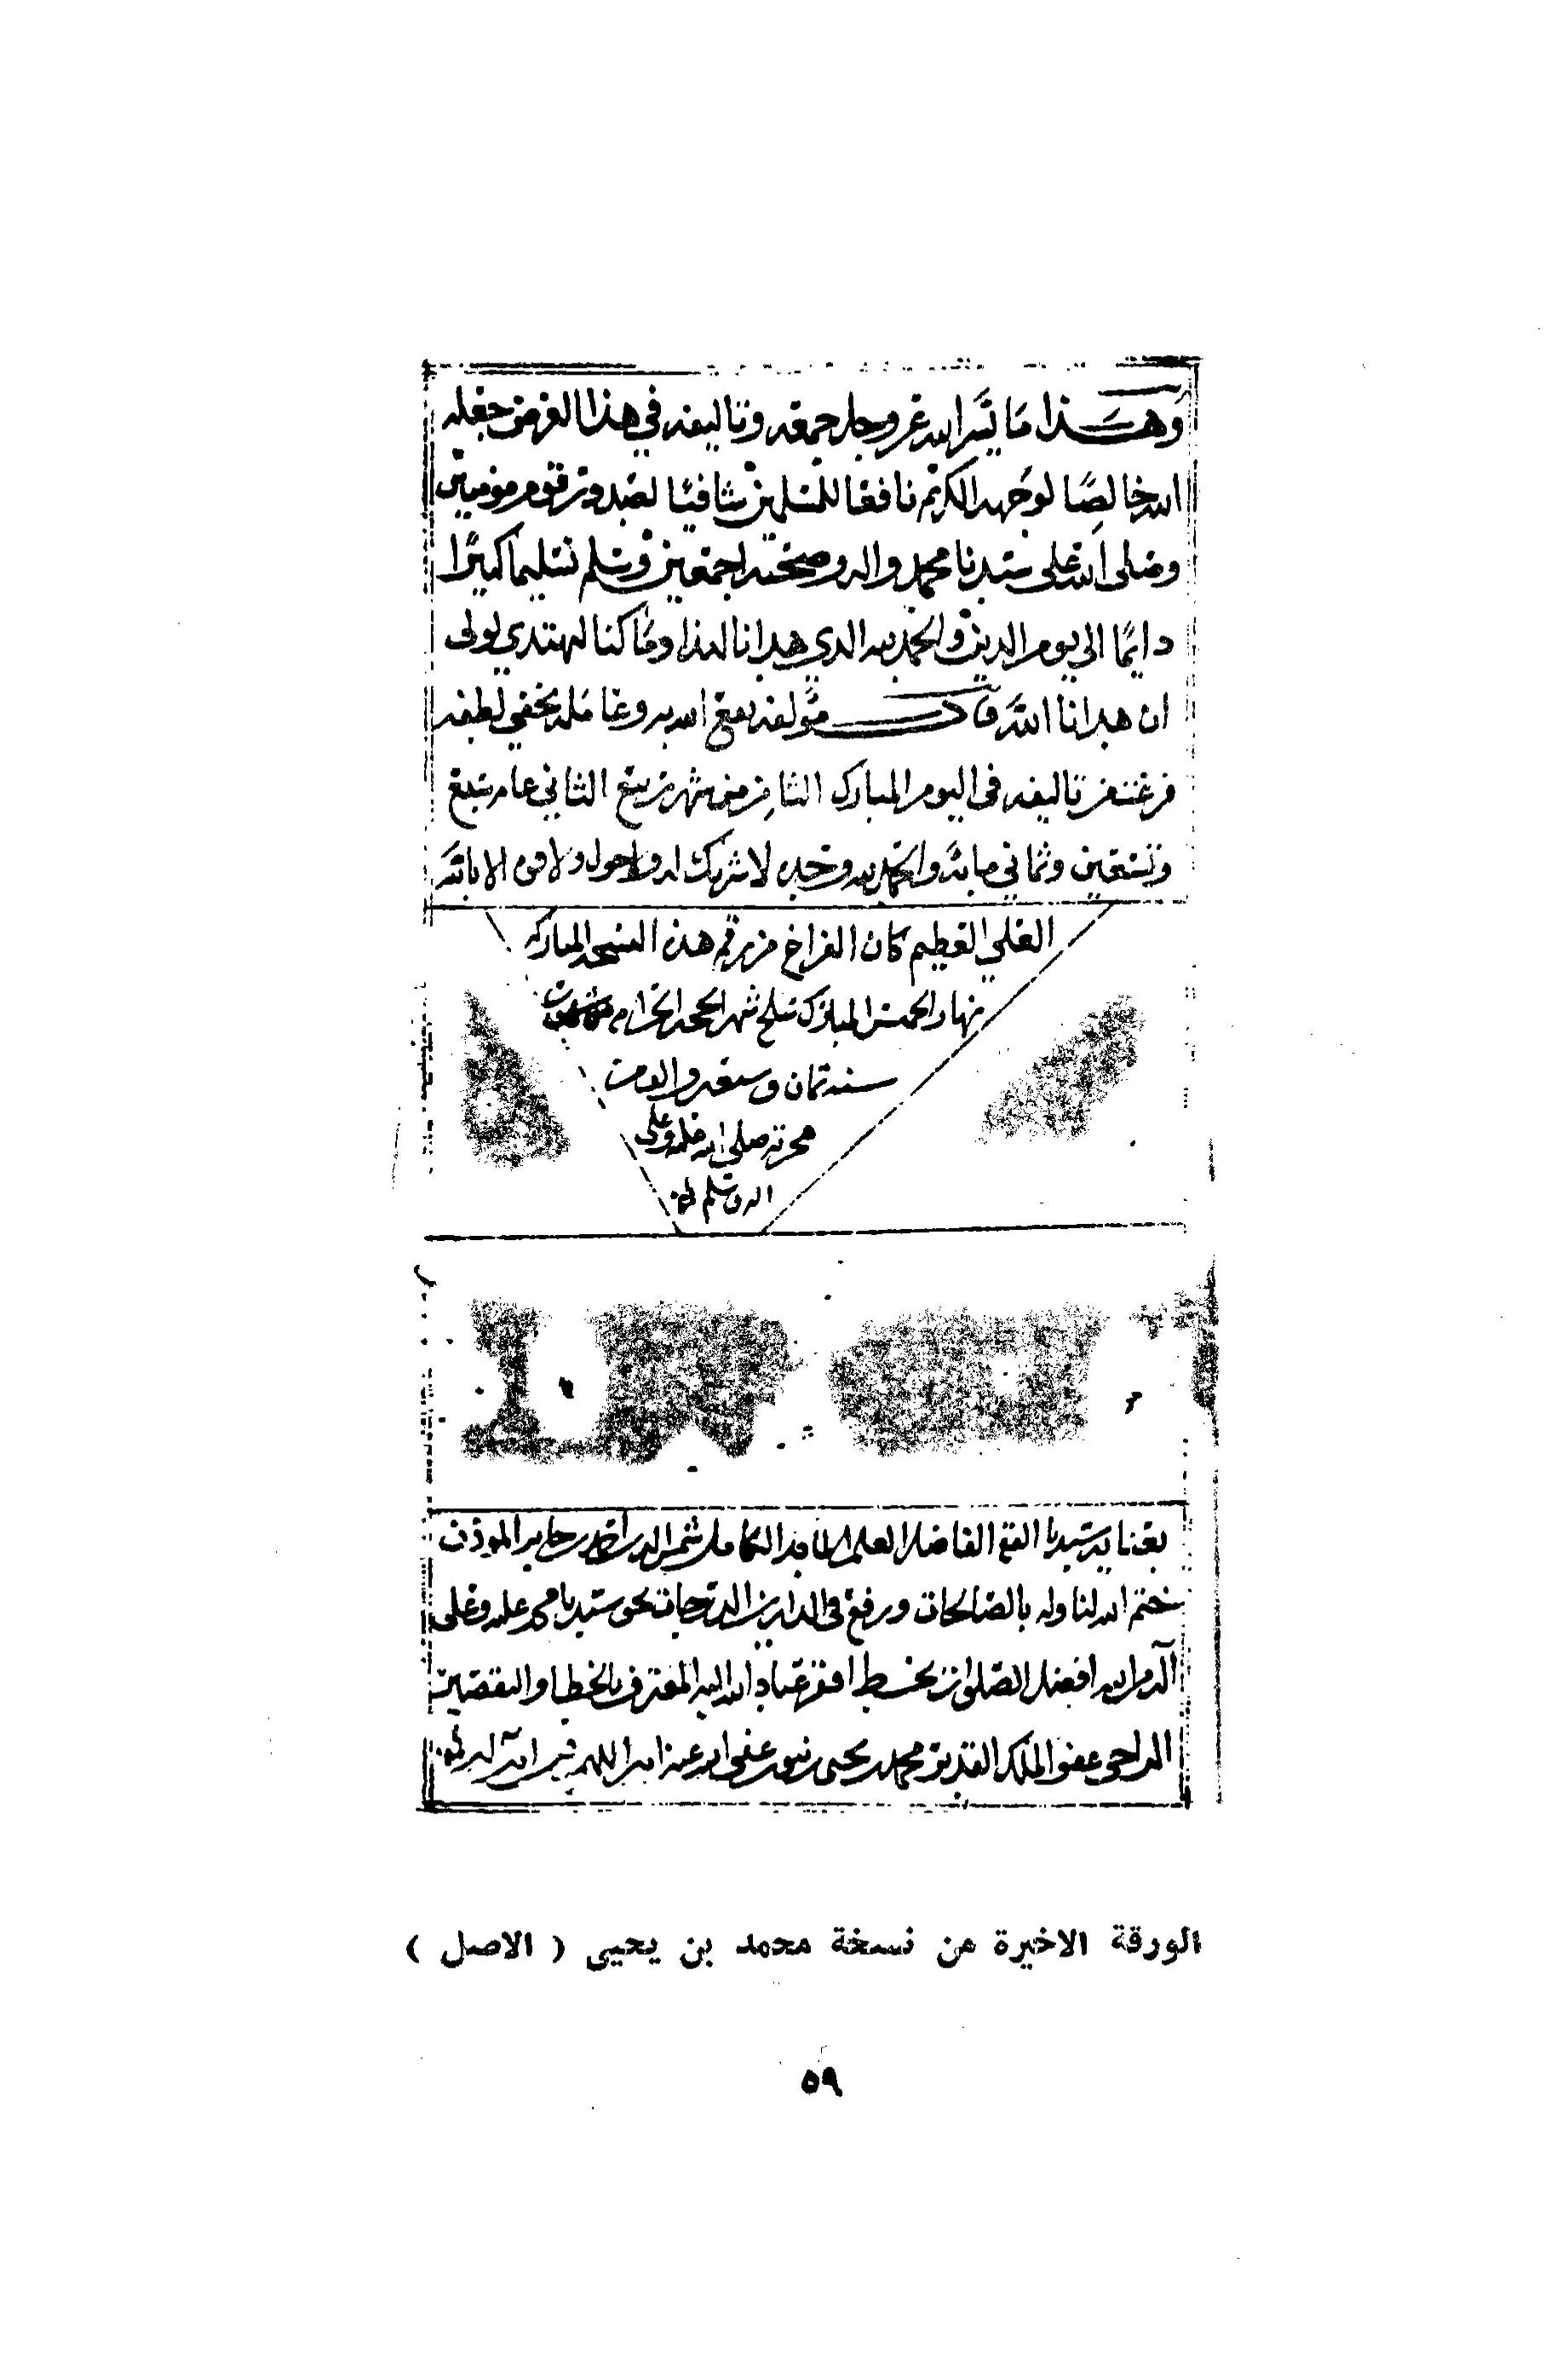 وهذا ما يسر الله عز وجل جمعه وتاليفه في هذا الغرض جعله
الله خالصًا لوجهه الكريم نافعا للمسلمين شافيًا لصدور قوم مومنين
وصلى الله على سيدنا محمد واله وصحبه اجمعين وسلم تسليما كثيرًا
دايمًا الى يوم الدين والحمد لله الذي هدانا لهذا وما كنا لنهتدي لولى
ان هدانا الله قال مؤلفه نفع الله به وعامله بخفي لطفه
فرغت من تاليفه في اليوم المبارك الثامن من شهر ربيع الثاني عام سبع
وتسعين وثماني مايه والحمد لله وحده لا شريك له ولا حول ولا قوه الا بالله
العلي العظيم كان الفراغ من رقم هذه النسخه المباركه
نهار الخميس المبارك سلخ شهر الحجه الحرام من شهور
سنه ثمان و والف من
هجرته صلى الله عليه وعلى
اله وسلم
بعنايه سيدنا الفقيه الفاضل العلم الماجد الكامل شمس الدين احمد بن جابر الموذن
ختم الله لنا وله بالصالحات ورفع له في الدارين الدرجات بحق سيدنا محمد عليه وعلى
آله من الله افضل الصلوات بخط افقر عباد الله اليه المعترف بالخطا والتقصير
الراجي عفو الملك القدير محمد بن يحيى عفى الله عنه امين اللهم امين
الورقة الاخيرة من نسخة محمد بن يحيى ( الاصل )
٥٩